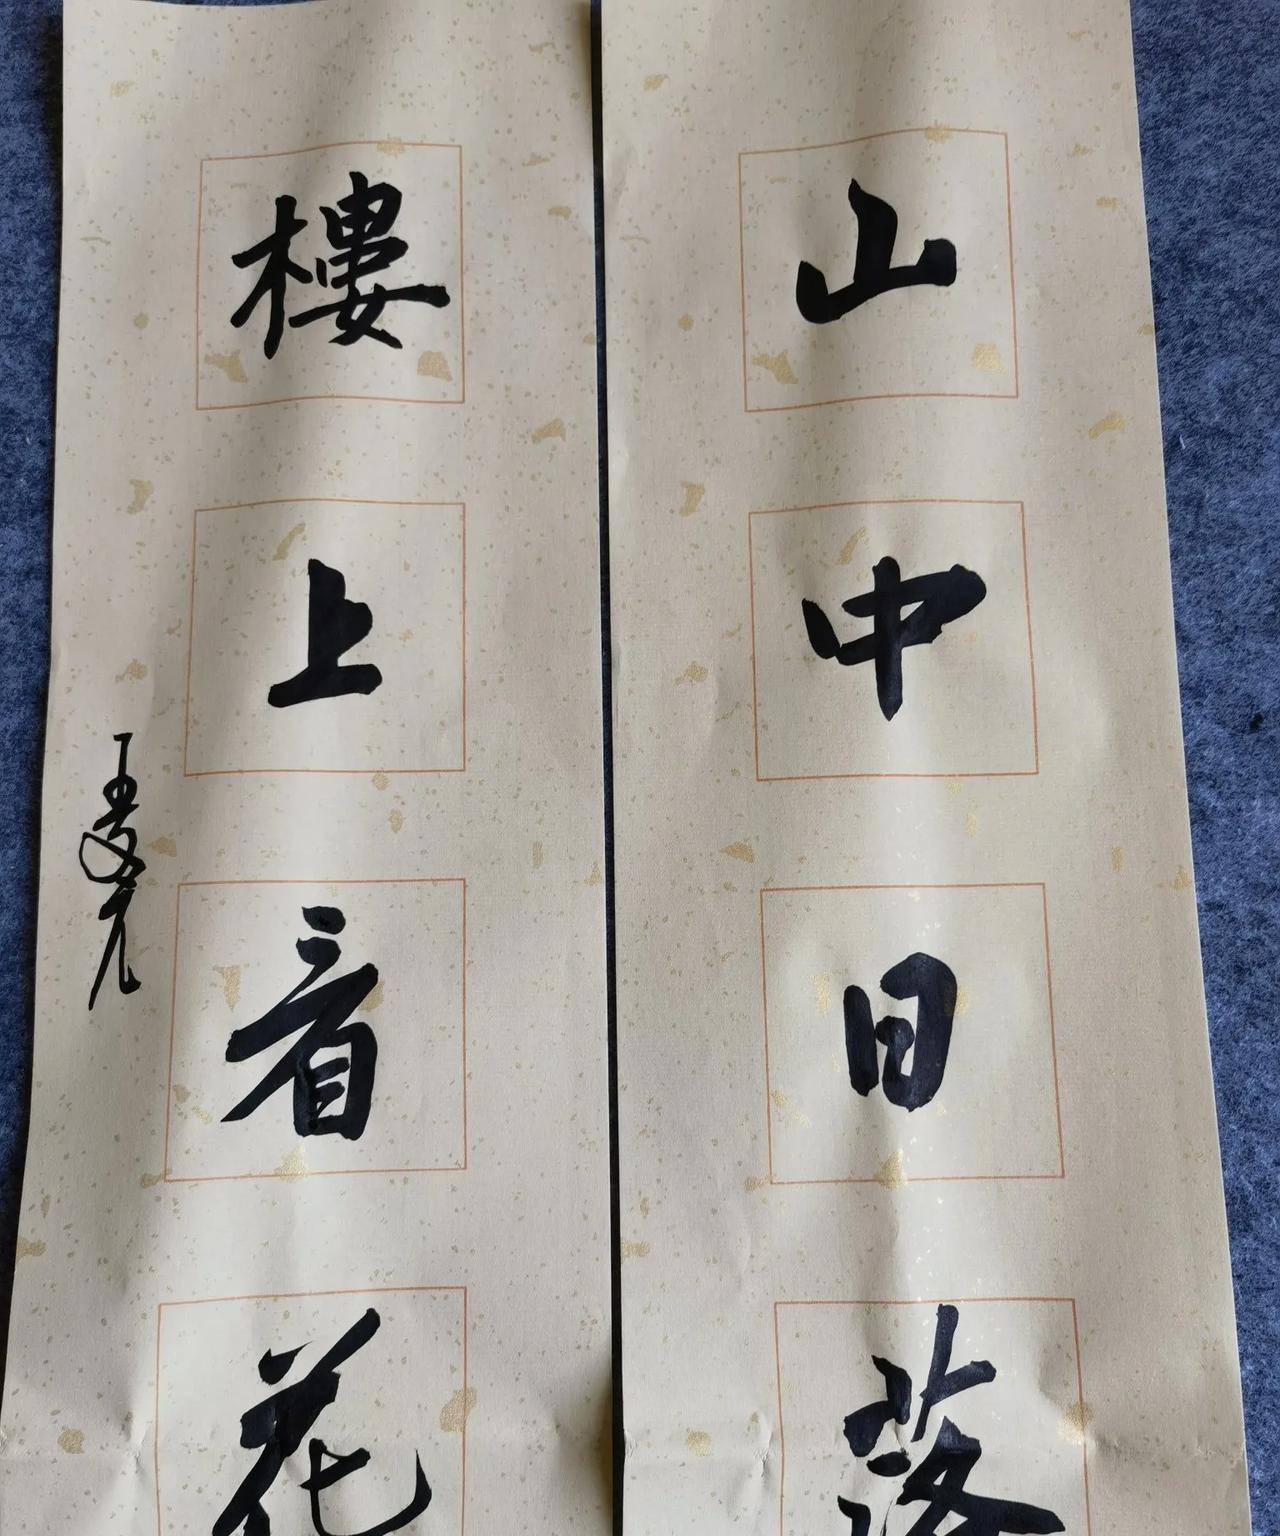 山中日落
樓上看花